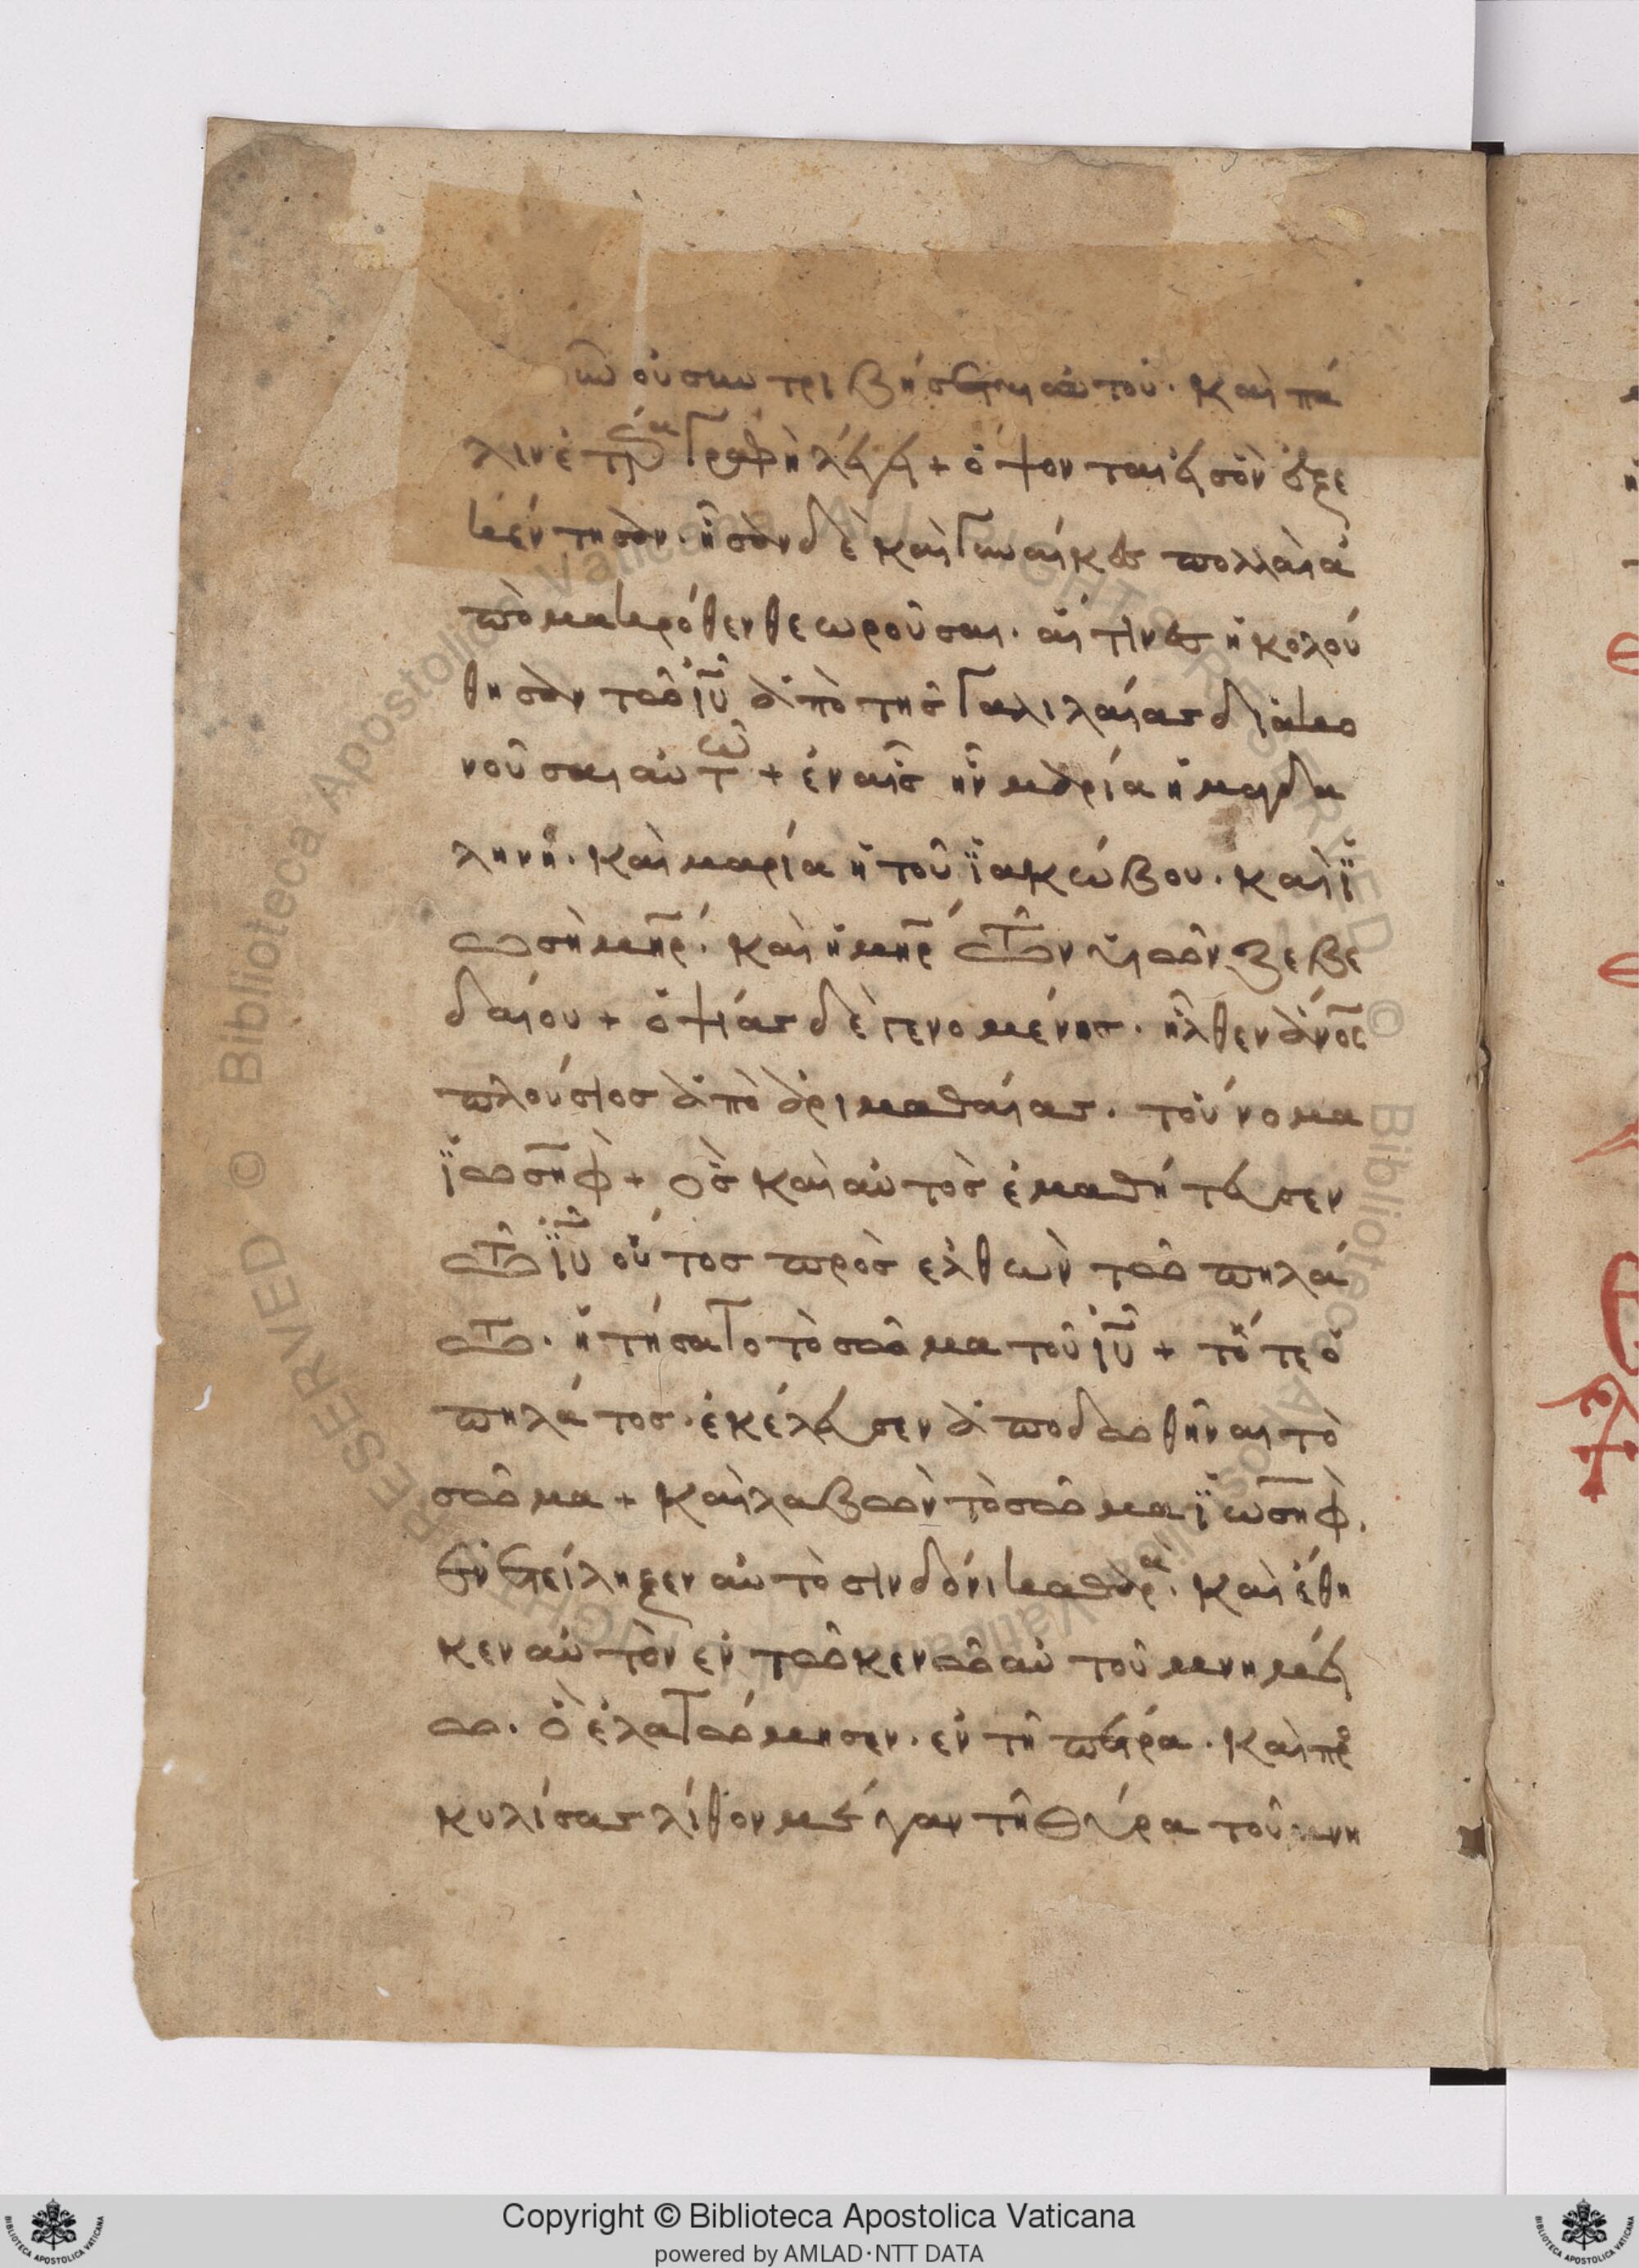 οὐ συντριβήσεται αὐτοῦ· καὶ πά
λιν ἑτέρα γραφὴ λέγει + ὄψονται εἰς ὃν ἐξε
κέντησαν· ἦσαν δὲ καὶ γυναίκες πολλαὶ ἀ
πὸ μακρόθεν θεωροῦσαι· αἵτινες ἠκολού
θησαν τῶ ἰῦ ἀπὸ τῆς γαλιλαίας διακο
νοῦσαι αὐτῶ + ἐν αἷς ἦν μαρία ἡ μαγδα
ληνή· καὶ μαρία ἡ τοῦ ἰακώβου· καὶ ἰ
ωσὴ μηρ· καὶ ἡ μηρ τῶν υἱῶν ζεβε
δαίου + ὀψίας δὲ γενομένης· ἦλθεν ἄνος
πλούσιος ἀπὸ ἀριμαθαίας· τοὔνομα
ἰωσὴφ + ὃς καὶ αὐτὸς ἐμαθήτευσεν
τῶ ἰῦ οὗτος προσελθὼν τῶ πηλά
τω· ἠτήσατο τὸ σῶμα τοῦ ἰῦ + τότε ὁ
πηλάτος· ἐκέλευσεν ἀποδωθῆναι τὸ
σῶμα + καὶ λαβὼν τὸ σῶμα ἰωσὴφ·
ἐνετείληξεν αὐτὸ σινδόνι καθαρᾶ· καὶ ἔθη
κεν αὐτὸν ἐν τῶ κενῶ αὐτοῦ μνημεί
ω· ὃ ἐλατώμησεν· ἐν τῆ πέτρα· καὶ πρ
κυλίσας λίθον μέγαν τῆ θύρα τοῦ μνη
Copyright © Biblioteca Apostolica Vaticana
powered by AMLAD·NTT DATA